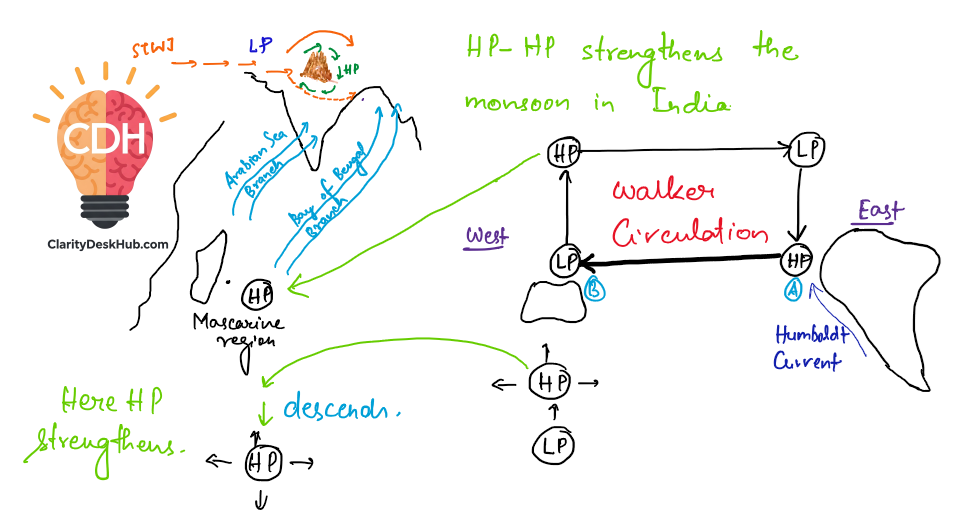 STWJ
LP
HP
CDH
ClarityDeskHub.com
Arabian Sea
Branch
Bay of Bengal
Branch
HP
Mascarine
region
HP-HP strengthens the
monsoon in India
HP
LP
Walker
Circulation
West
East
LP
HP
B
A
Humboldt
Current
HP
LP
Here HP
strengthens.
descends.
HP